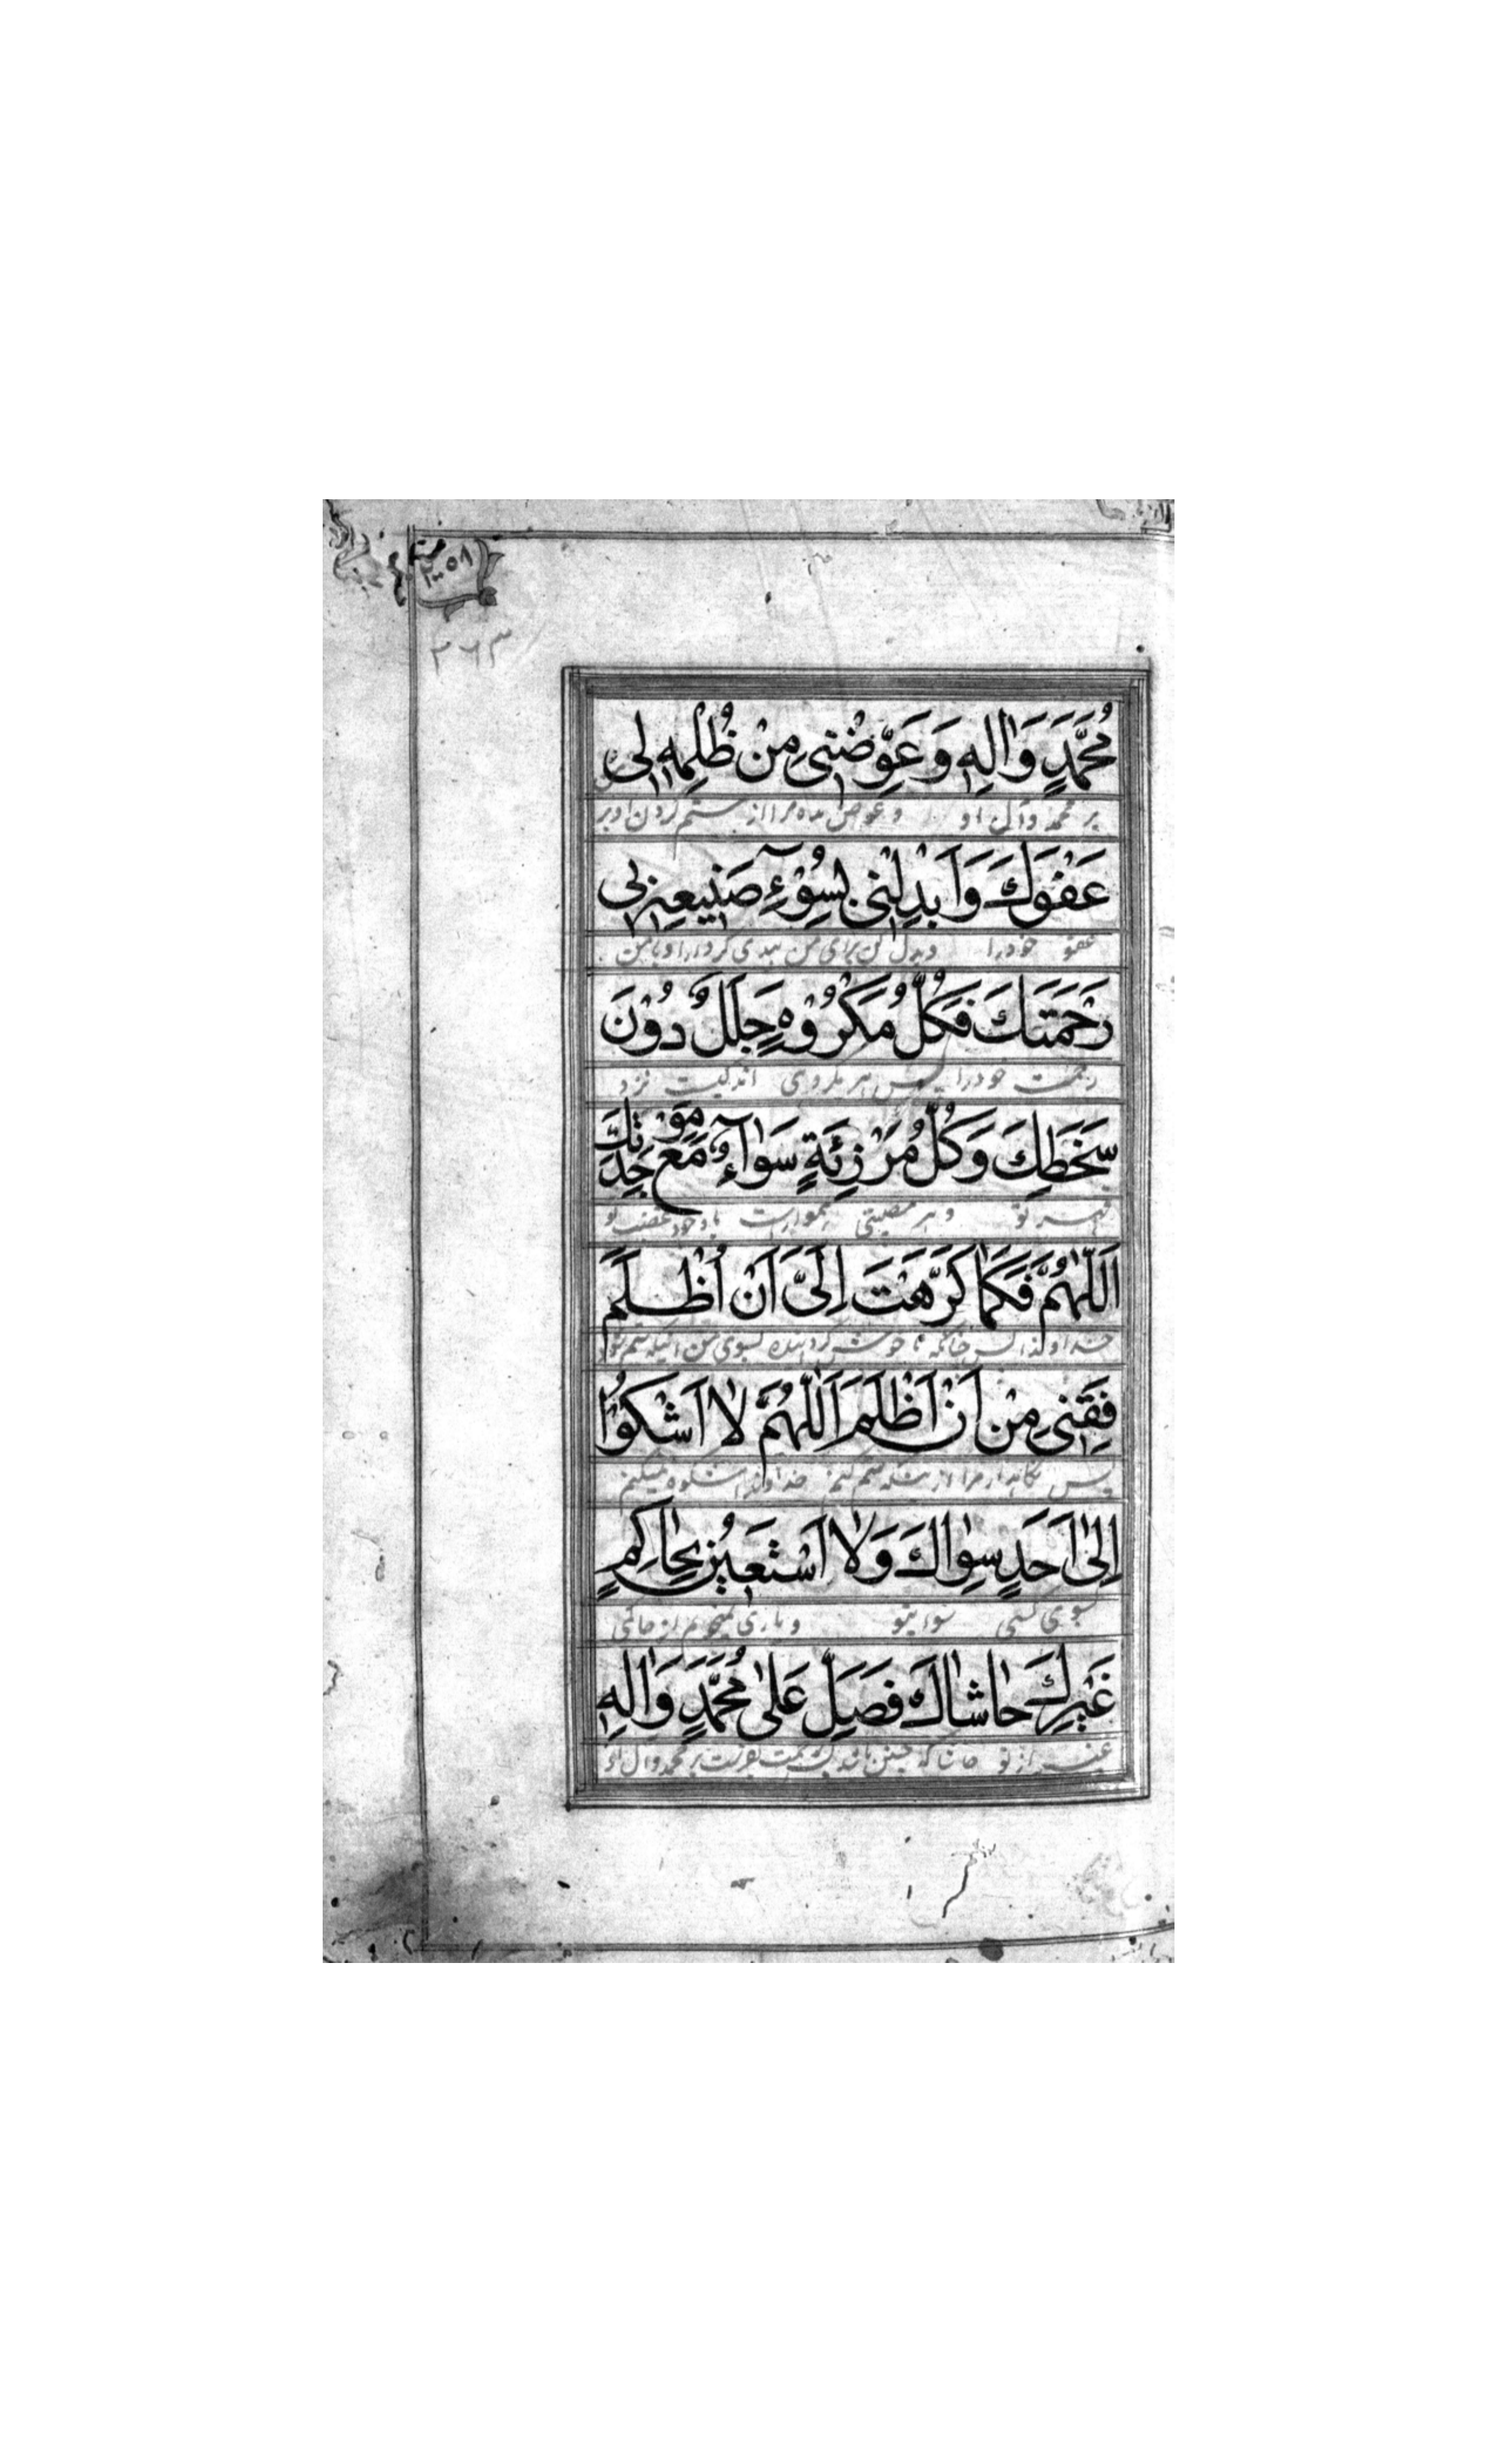 ٢٠٥٨
٣٦٣
مُحَمَّدٍ وَاٰلِهٖ وَعَوِّضْنِي مِنْ ظُلْمِهٖ لِي
بر محمد و آل او و عوض ده مرا از ستم کردن او بر
عَفْوَكَ وَاَبْدِلْنِي بِسُوْٓءِ صَنِيعِهٖ بِي
عفو خود را و بدل کن برای من بدی کردار او با من
رَحْمَتَكَ فَكُلُّ مَكْرُوْهٍ جَلَلٌ دُوْنَ
رحمت خود را پس هر مکروهی اندکیست نزد
سَخَطِكَ وَكُلُّ مَرْزِئَةٍ سَوَآءٌ مَعَ مَوْجِدَتِكَ
تو و هر مصیبتی هموار است با وجود غضب تو
اَللّٰهُمَّ فَكَمَا كَرَّهْتَ اِلَيَّ اَنْ اُظْلَمَ
خداوندا پس چنانکه نا خوش گردانیده بسوی من اینکه ستم
فَقِنِي مِنْ اَنْ اَظْلِمَ اَللّٰهُمَّ لَا اَشْكُوْا
پس نگاهدار مرا از ستم کنم خداوندا شکوه نمیکنم
اِلٰى اَحَدٍ سِوَاكَ وَلَا اَسْتَعِيْنُ بِحَاكِمٍ
بسوی کسی سوای تو و یاری نمیخواهم از حاکمی
غَيْرِكَ حَاشَاكَ فَصَلِّ عَلٰى مُحَمَّدٍ وَاٰلِهٖ
غیر از تو حاشا که چنین باشد پس رحمت بفرست بر محمد و آل او